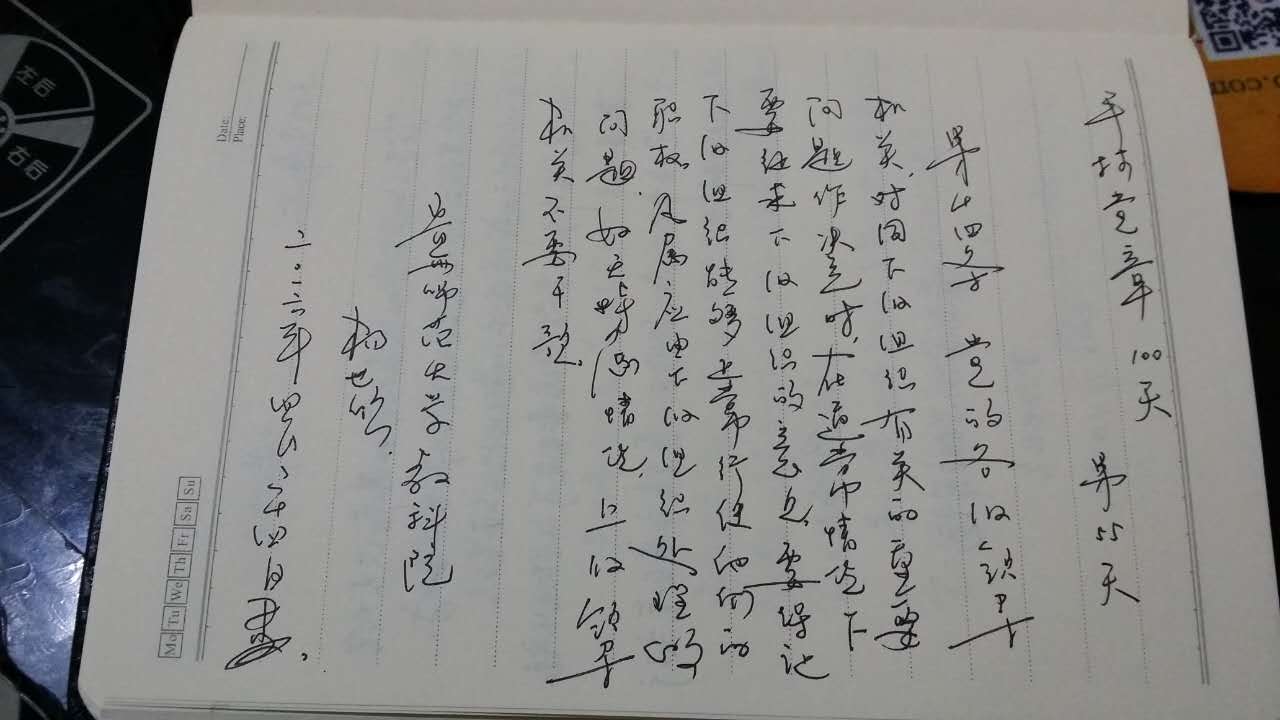 手抄党章100天 第55天
第十四条 党的各级领导
机关,对同下级组织有关的重要
问题作决定时,在通常情况下,
要征求下级组织的意见。要保证
下级组织能够正常行使他们的
职权。凡属应由下级组织处理的
问题,如无特殊情况,上级领导
机关不要干预。
师范大学 教科院
杨
二〇一六年 四月二十四日
Date
Place
Mo Tu We Th Fr Sa Su
左后
右后